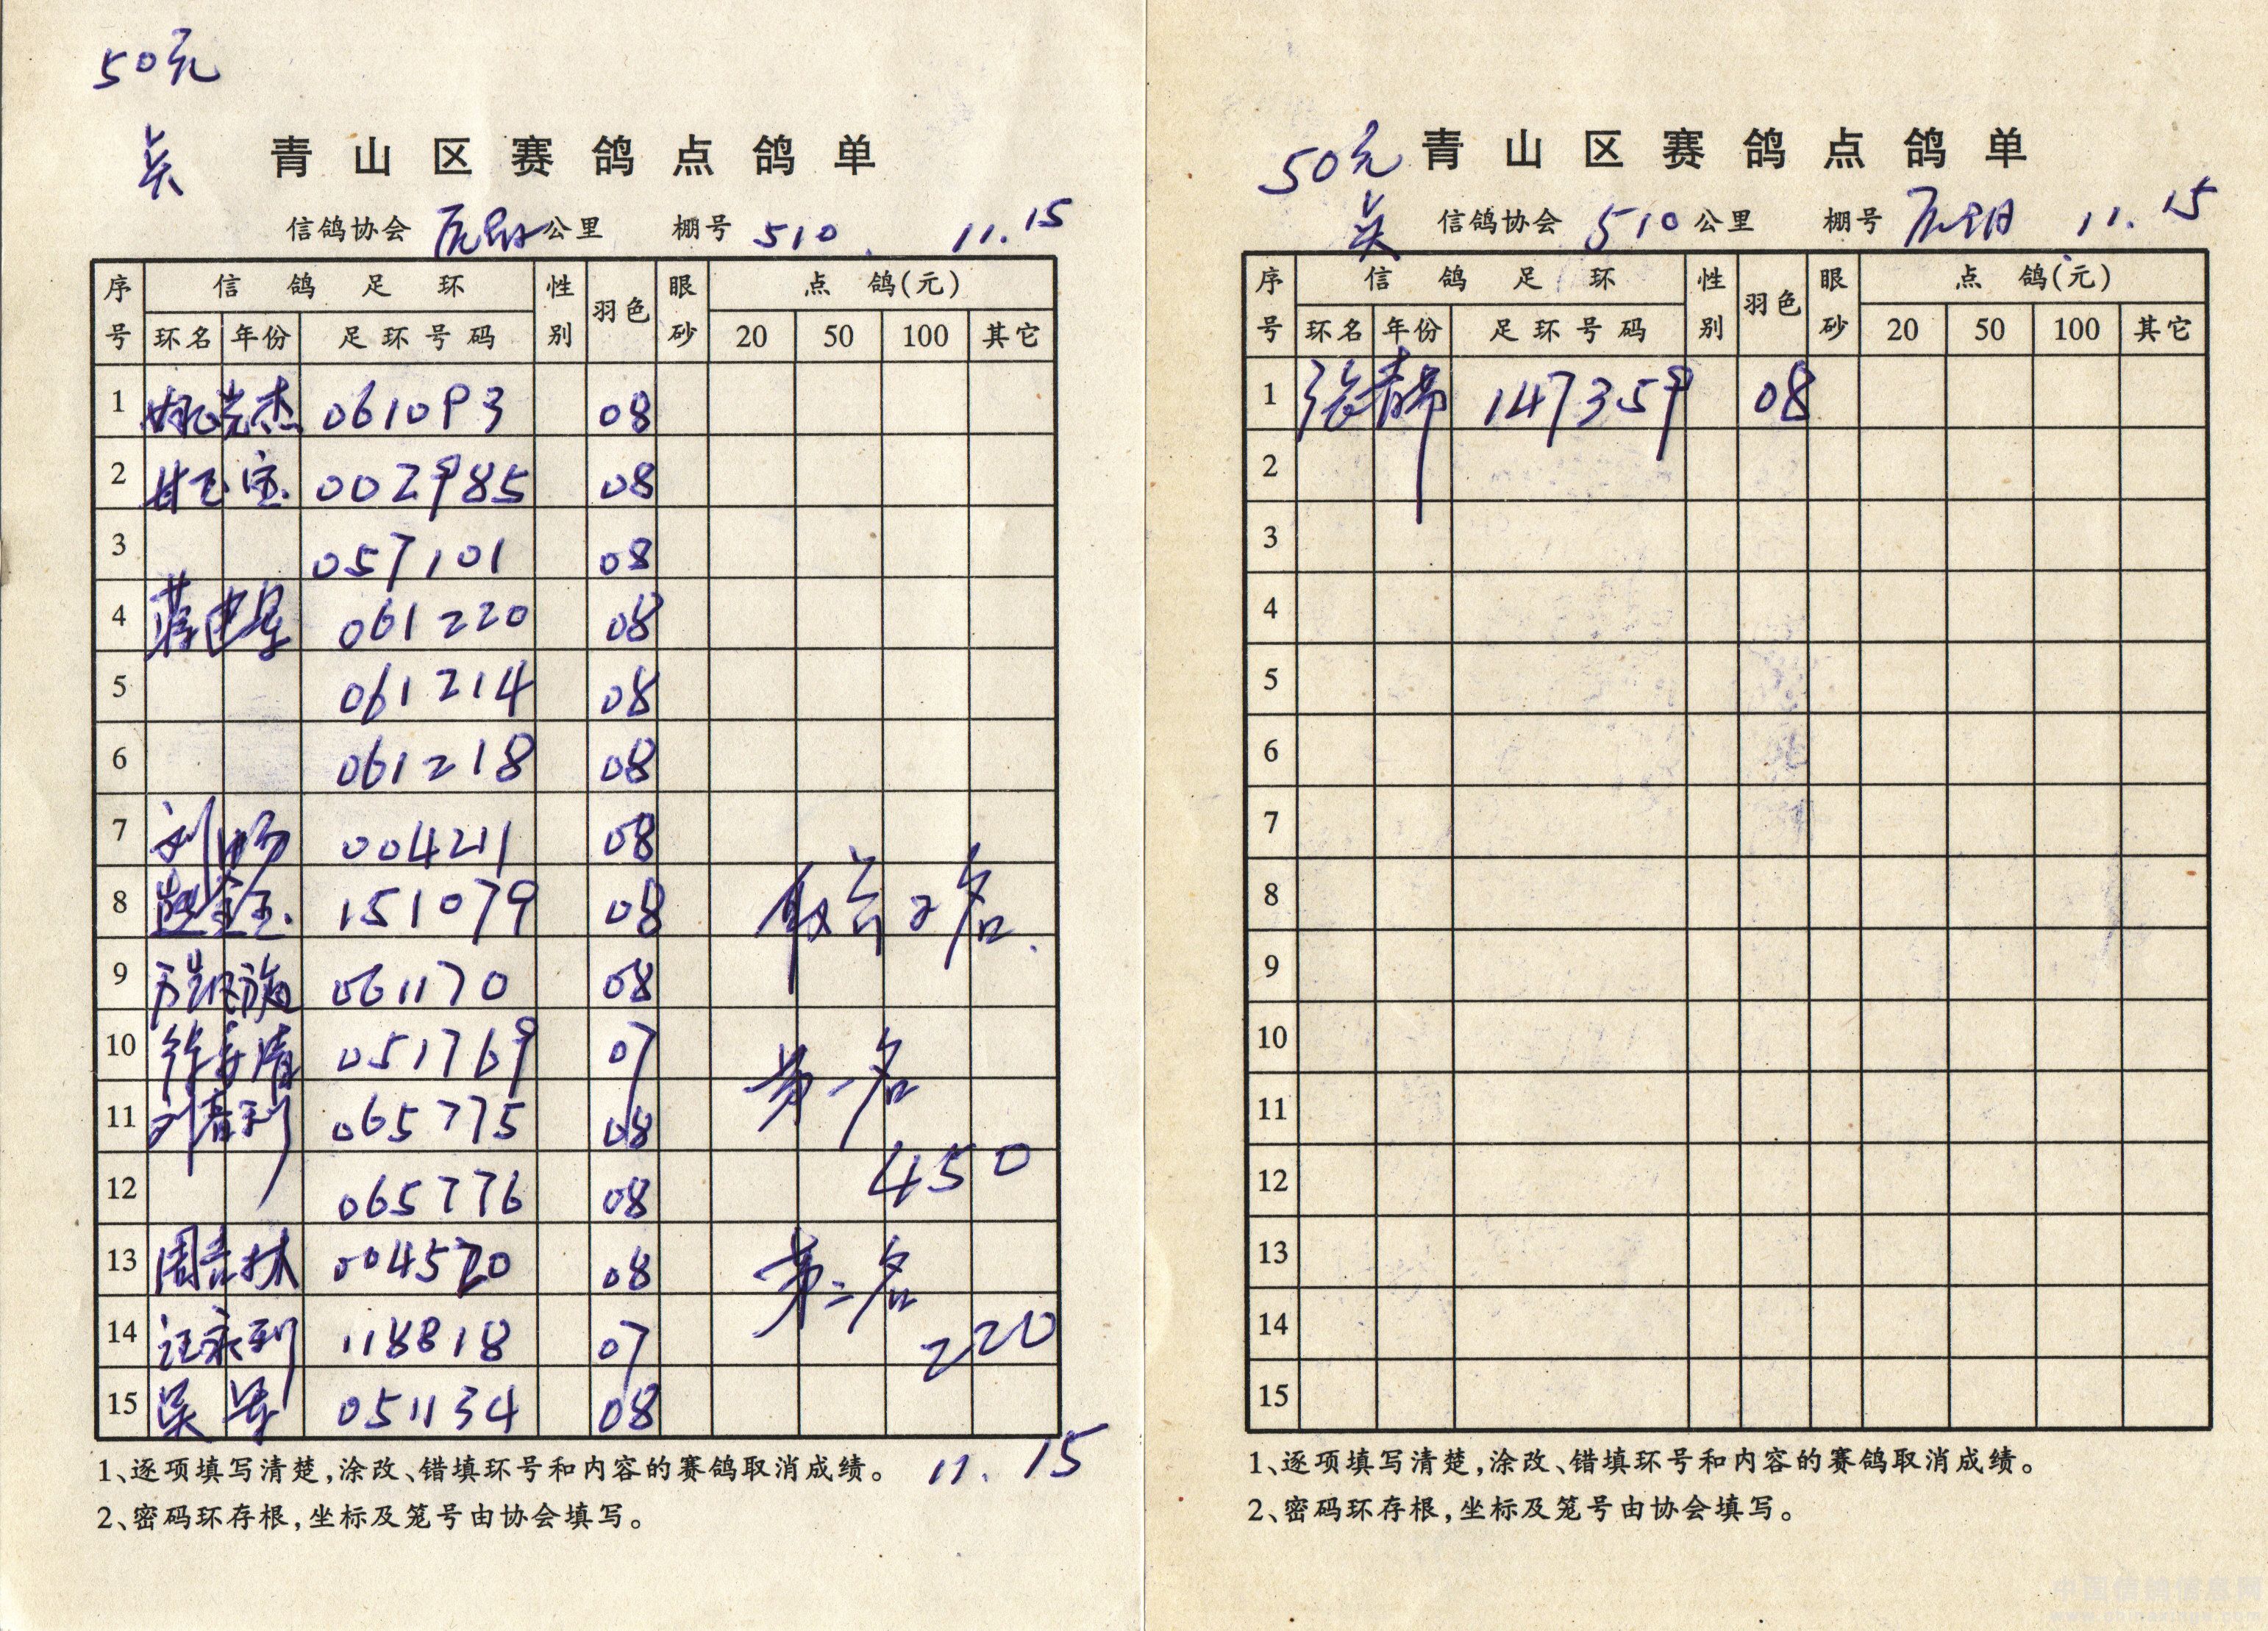 50元
吴
青山区赛鸽点鸽单
信鸽协会 公里 棚号 510. 11.15
序号 信鸽足环 性别 羽色 眼砂 点鸽(元)
环名 年份 足环号码 20 50 100 其它
1 姚光杰 061093 08
2 甘玉宝 002985 08
3 057101 08
4 蒋建军 061220 08
5 061214 08
6 061218 08
7 刘 004211 08
8 赵金玉 151079 08 取前2名
9 061170 08
10 徐 清 051769 07 第一名
11 刘 利 065775 08
12 065776 08 450
13 周吉林 004520 08 第二名
14 汪永利 118818 07 220
15 吴军 051134 08
1、逐项填写清楚,涂改、错填环号和内容的赛鸽取消成绩。 11.15
2、密码环存根,坐标及笼号由协会填写。
50元
吴
青山区赛鸽点鸽单
信鸽协会 510 公里 棚号 11.15
序号 信鸽足环 性别 羽色 眼砂 点鸽(元)
环名 年份 足环号码 20 50 100 其它
1 张 147359 08
2
3
4
5
6
7
8
9
10
11
12
13
14
15
1、逐项填写清楚,涂改、错填环号和内容的赛鸽取消成绩。
2、密码环存根,坐标及笼号由协会填写。
中国信鸽信息网